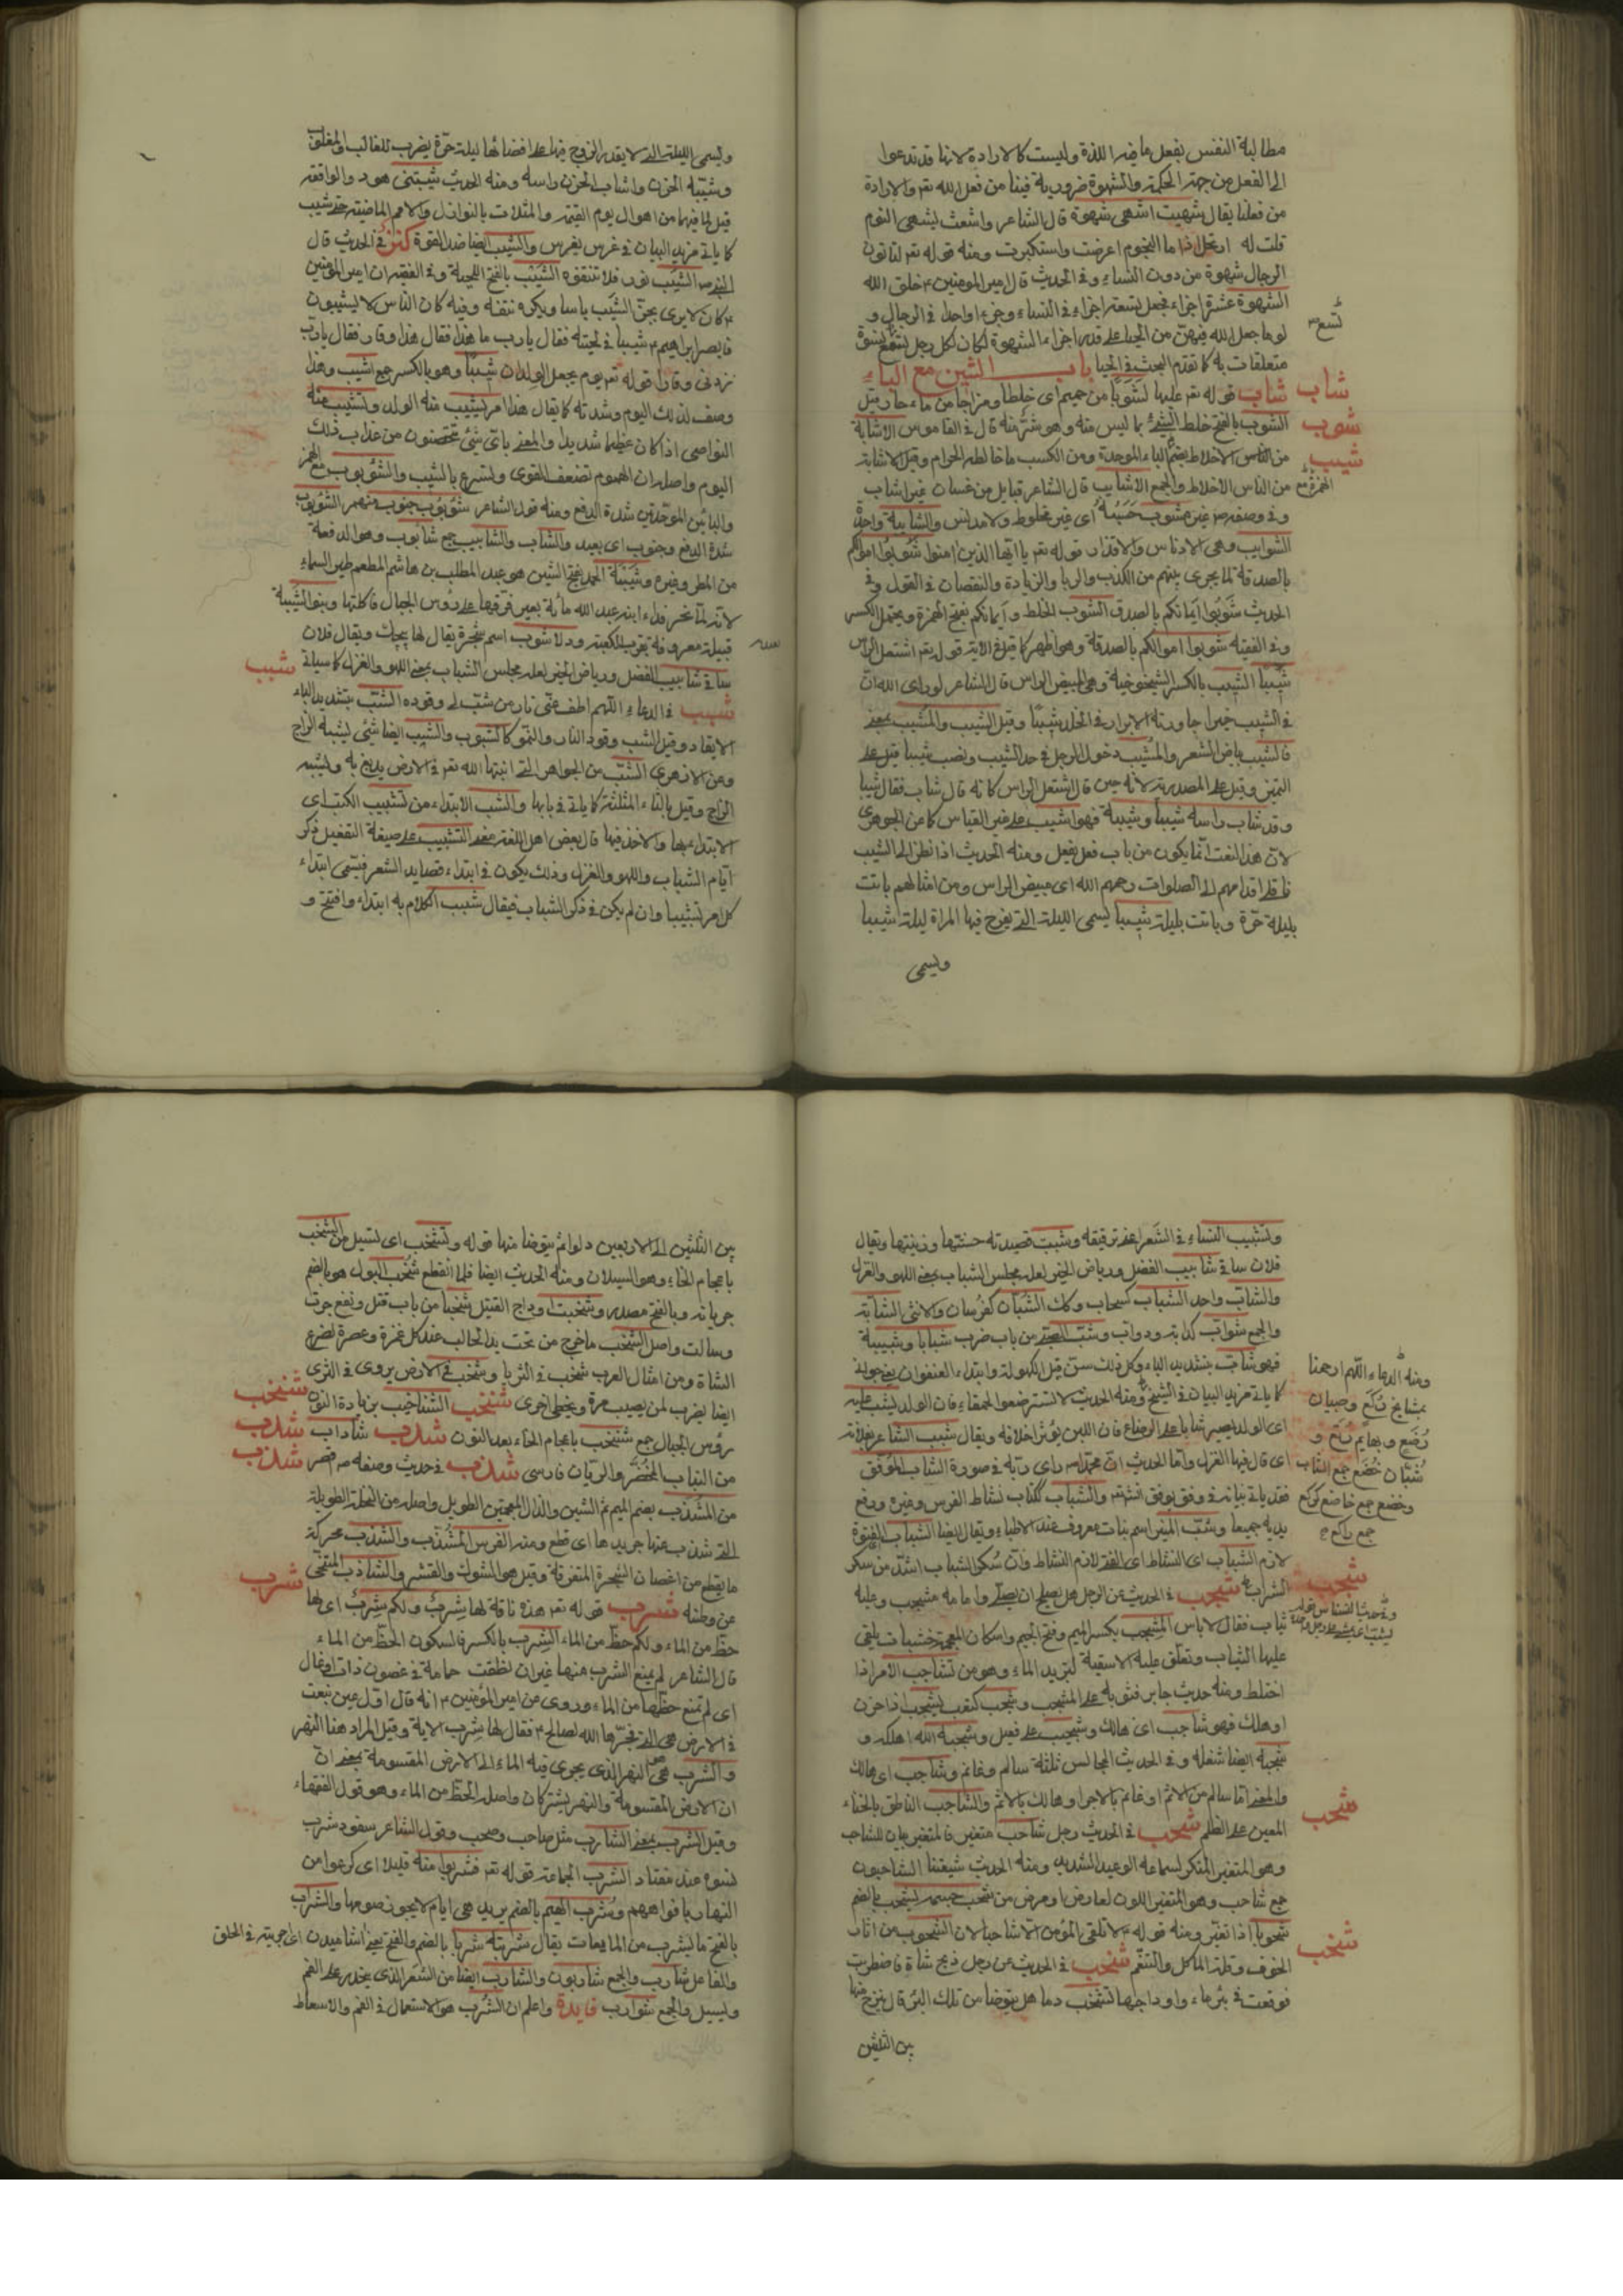 مطالبة النفس بفعل ما فيه اللذة وليست كالارادة لانها قد تدعوا
الى الفعل من جهة الحكمة والشهوة ضرورية فينا من فعل الله تعه والارادة
من فعلنا يقال شهيت اشهى شهوة قال الشاعر واشعث يشهى النوم
قلت له ارتحل اذا ما النجوم اعرضت واستكبرت ومنه قوله تعه لتاتون
الرجال شهوة من دون النساء وفى الحديث قال امير المومنين ء خلق الله
الشهوة عشرة اجزاء فجعل تسعة اجزاء فى النساء وجزء واحدا فى الرجال و
لولا ما جعل الله فيهن من الحياء على قدر اجزاء الشهوة لكان لكل رجل تسع نسوة
تسع
متعلقات به كما تقدم البحث فى الحيا باب الشين مع الباء
شاب شاب قوله تعه عليها لشوبا من حميم اى خلطا ومزاجا من ماء حار قيل
شوب الشوب بالفتح خلط الشئ بما ليس منه وهو شر منه قال فى القاموس الاشابة
شيب من الناس الاخلاط بضم الباء الموحدة ومن الكسب ما خالطه الحرام وقيل الاشابة
من الناس الاخلاط والجمع الاشايب قال الشاعر قبايل من غسان غير اشايب
وفى وصفه ص غير مشوب حسبه اى غير مخلوط ولا مدنس والشايبة واحدة
الشوايب وهى الادناس والاقذار قوله تعه يا ايها الذين امنوا شوبوا اموالكم
بالصدقة لما يجرى بينهم من الكذب والربا والزيادة والنقصان فى القول وفى
الحديث شوبوا ايمانكم بالصدق الشوب الخلط وأيمانكم بفتح الهمزة ويحتمل الكسر
وفى الفقيه شوبوا اموالكم بالصدقة وهو اظهر كما قيل فى الاية قوله تعه اشتعل الراس
شيبا الشيب بالكسر الشيخوخية وهى المبيض الراس قال الشاعر لو راى الله ان
فى الشيب خيرا جاورته الابرار فى الخلد شيبا وقيل الشيب والمشيب بمعنى
فالشيب بياض الشعر والمشيب دخول الرجل فى حد الشيب ونصب شيبا قيل على
التميز وقيل على المصدرية لانه حين قال اشتعل الراس كانه قال شاب فقال شيبا
وقد شاب راسه شيبا وشيبة فهو اشيب على غير القياس كما عن الجوهرى
لان هذا النعت انما يكون من باب فعل يفعل ومنه الحديث اذا نظر الى الشيب
فاقلى اقدامهم الى الصلوات رحمهم الله اى مبيض الراس ومن امثالهم باتت
بليلة حرة وباتت بليلة شيبا يسمى الليلة التى يفرح فيها المراة ليلة شيبا
ويسمى
ويسمى الليلة التى لا يقدر الزوج فيها على افضائها ليلة حرة يضرب للغالب والمغلوب
وشيبه الحزن واشاب الحزن راسه ومنه الحديث شيبتنى هود والواقعة
قيل لما فيها من اهوال يوم القيمة والمثلات بالنوازل والامم الماضية حتى شيب
كما ياتى مزيد البيان فى غرس يغرس والشيب ايضا ضد القوة وفى الحديث قال
النبى ص الشيب نور فلا تنتفوه الشيب بالفتح اللحية وفى الفقيه ان امير المؤمنين
ء كان لا يرى بجز الشيب باسا ويكره نتفه وفيه كان الناس لا يشيبون
فابصر ابراهيم ء شيبا فى لحيته فقال يا رب ما هذا فقال هذا وقار فقال يا رب
زدنى وقارا قوله تعه يوم يجعل الولدان شيبا وهو بالكسر جمع اشيب وهذا
وصف لذلك اليوم وشدته كما يقال هذا امر يشيب منه الوليد وتشيب منه
النواصى اذا كان عظيما شديدا والمعنى باى شئ تتحصنون من عذاب ذلك
اليوم واصله ان الهموم تضعف القوى وتسرع بالشيب والشؤبوب مع الهمز
والبائين الموحدتين شدة الدفع ومنه قول الشاعر شؤبوب جنوب منهمر الشؤبوب
شدة الدفع وجنوب اى بعيد والشاب والشابيب جمع شابوب وهو الدفعة
من المطر وغيره وشيبة الحمد بفتح الشين هو عبد المطلب بن هاشم المطعم طير السماء
لانه لما نحر فداء ابنه عبد الله مأة بعير فرقها على رؤس الجبال فاكلتها وبنو الشيبة
قبيلة معروفة بقرب الكعبة ودلا شوب اسم شجرة يقال لها پچك ويقال فلان
شبب ساق شابيب الفضل ورياض الخير لعله مجلس الشباب بمعنى اللهو والغزل كما سياتى
شبب فى الدعاء اللهم اطف عنى نار من شب لى وقوده الشب بتشديد الباء
الايقاد وقيل الشب وقود النار والنمو كالشبوب والشبب ايضا شئ يشبه الزاج
وعن الازهرى الشب من الجواهر التى انبتها الله تعه فى الارض يدبغ به ويشبه
الزاج وقيل بالثاء المثلثة كما ياتى فى بابها والشب الابتداء من تشبيب الكتب اى
الابتداء بها والاخذ فيها قال بعض اهل اللغة معنى التشبيب على صيغة التفعيل ذكر
ايام الشباب واللهو والغزل وذلك يكون فى ابتداء قصايد الشعر فيسمى ابتداء
كل امر تشبيبا وان لم يكن فى ذكر الشباب فيقال شبب الكلام به ابتداء وافتتح و
وتشبيب النساء فى الشعر اعنى ترقيقه وشبب قصيدته حسنتها وزينتها ويقال
فلان ساق شابيب الفضل ورياض الخير لعله مجلس الشباب بمعنى اللهو والغزل
والشاب واحد الشباب كسحاب وكذا الشبان كفرسان والانثى الشابة
والجمع شواب كدابة ودواب وشب الصبى من باب ضرب شبابا وشبيبة
فهو شاب بتشديد الباء وكل ذلك سن قبل الكهولة وابتداء العنفوان
كما ياتى مزيد البيان فى الشيخ ومنه الحديث لا تسترضعوا الحمقاء فان الولد يشب عليه
اى الولد يصير شابا على الرضاع فان اللبن يؤثر اخلاقه ويقال شبب الشاعر بفلانة
اى قال فيها الغزل واما الحديث ان محمدا ص راى ربه فى صورة الشاب الموفق
فقد ياتى بيانه فى وفق يوفق انشه والشباب ككتاب نشاط الفرس وغيره ورفع
يديه جميعا وشب الليل اسم نبات معروف عند الاطباء ويقال ايضا الشباب الفتوة
لازم الشباب اى النشاط اى الفتى لازم النشاط وان سكر الشباب اشد من سكر
الشراب شجب فى الحديث عن الرجل هل يصلح ان يصلى وامامه مشجب وعليه
ثياب فقال لا باس المشجب بكسر الميم وفتح الجيم واسكان المعجمة خشبات يلقى
عليها الثياب وتعلق عليه الاسقية لتبريد الماء وهو من تشاجب الامر اذا
اختلط ومنه حديث جابر فثوبه على المشجب وشجب كتعب يشجب اذا حزن
او هلك فهو شاجب اى هالك وشجيب على فعيل وشجبه الله اهلكه و
شجبه ايضا شغله وفى الحديث المجالس ثلثة سالم وغانم وشاجب اى هالك
والمعنى اما سالم من الاثم او غانم بالاجر او هالك بالاثم والشاجب الناطق بالخناء
المعين على الظلم شحب فى الحديث رجل شاحب متغير فالمتغير بيان للشاحب
وهو المتغير المنكر لسماعه الوعيد الشديد ومنه الحديث شيعتنا الشاحبون
جمع شاحب وهو المتغير اللون لعارض او مرض من شحب جسمه يشحب بالضم
شحوبا اذا تغير ومنه قوله ء لا تلقى المؤمن الا شاحبا لان الشحوب من اثار
الخوف وقلة الماكل والتنعم شخب فى الحديث عن رجل ذبح شاة فاضطربت
فوقعت فى بئر ماء واوداجها تشخب دما هل يتوضا من تلك البئر قال ينزح منها
بين الثلثين
ومنه الدعاء اللهم ارحمنا
بمشايخ ركع وصبيان
رضع وبهايم رتع و
شبان خضع جمع الشاب
وخضع جمع خاضع كركع
جمع راكع
شجب
شحب
شخب
بين الثلثين الى الاربعين دلوا ثم يتوضا منها قوله وتشخب اى تسيل من الشخب
باعجام الخاء وهو السيلان ومنه الحديث ايضا فلما انقطع شخب البول هو بالضم
جريانه وبالفتح مصدر وشخبت اوداج القتيل شخبا من باب قتل ونفع جرت
وسالت واصل الشخب ما خرج من تحت يد الحالب عند كل غمزة وعصرة لضرع
الشاة ومن امثال العرب شخب فى الثريا وشخب فى الارض يروى فى الثرى
شنخب ايضا يضرب لمن يصيب مرة ويخطى اخرى شنخب الشناخيب بزيادة النون
شدب رؤس الجبال جمع شنخب باعجام الخاء بعد النون شدب شاداب
شذب من النبات المخضر والريان فارسى شذب فى حديث وصفه ص اقصر
من المشذب بضم الميم ثم الشين والذال المعجمتين الطويل واصله من النخلة الطويلة
التى شذب عنها جريدها اى قطع ومنه الفرس المشذب والشذب محركة
ما يقطع من اغصان الشجرة المتفرقة وقيل هو الشوك والقشر والشاذب المتنحى
شرب عن وطنه شرب قوله تعه هذه ناقة لها شرب ولكم شرب اى لها
حظ من الماء ولكم حظ من الماء الشرب بالكسر فالسكون الحظ من الماء
قال الشاعر لم يمنع الشرب منها غير ان نطقت حمامة فى غصون ذات اوقال
اى لم تمنع حظها من الماء وروى عن امير المؤمنين ء انه قال اول عين نبعت
فى الارض هى التى فجرها الله لصالح ء فقال لها شرب الاية وقيل المراد هنا النهر
والشرب هى النهر الذى يجرى فيه الماء الى الارض المقسومة بمعنى ان
ان الارض المقسومة والنهر يشتركان واصله الحظ من الماء وهو قول الفقهاء
وقيل الشرب بمعنى الشارب مثل صاحب وصحب وقول الشاعر سفود شرب
نسوه عند مفتاد الشرب الجماعة قوله تعه فشربوا منه قليلا اى كرعوا من
النهار بافواههم وشرب الهيم بالضم يريد هى ايام لا يجوز صومها والشراب
بالفتح ما يشرب من المايعات يقال شربته شربا بالضم والفتح بمعنى اشاميدن اى جريته فى الحلق
والفاعل شارب والجمع شاربون والشارب ايضا من الشعر الذى ينحدر على الفم
ويسيل والجمع شوارب فايدة واعلم ان الشرب هو الاستعمال فى الفم والاسعاط